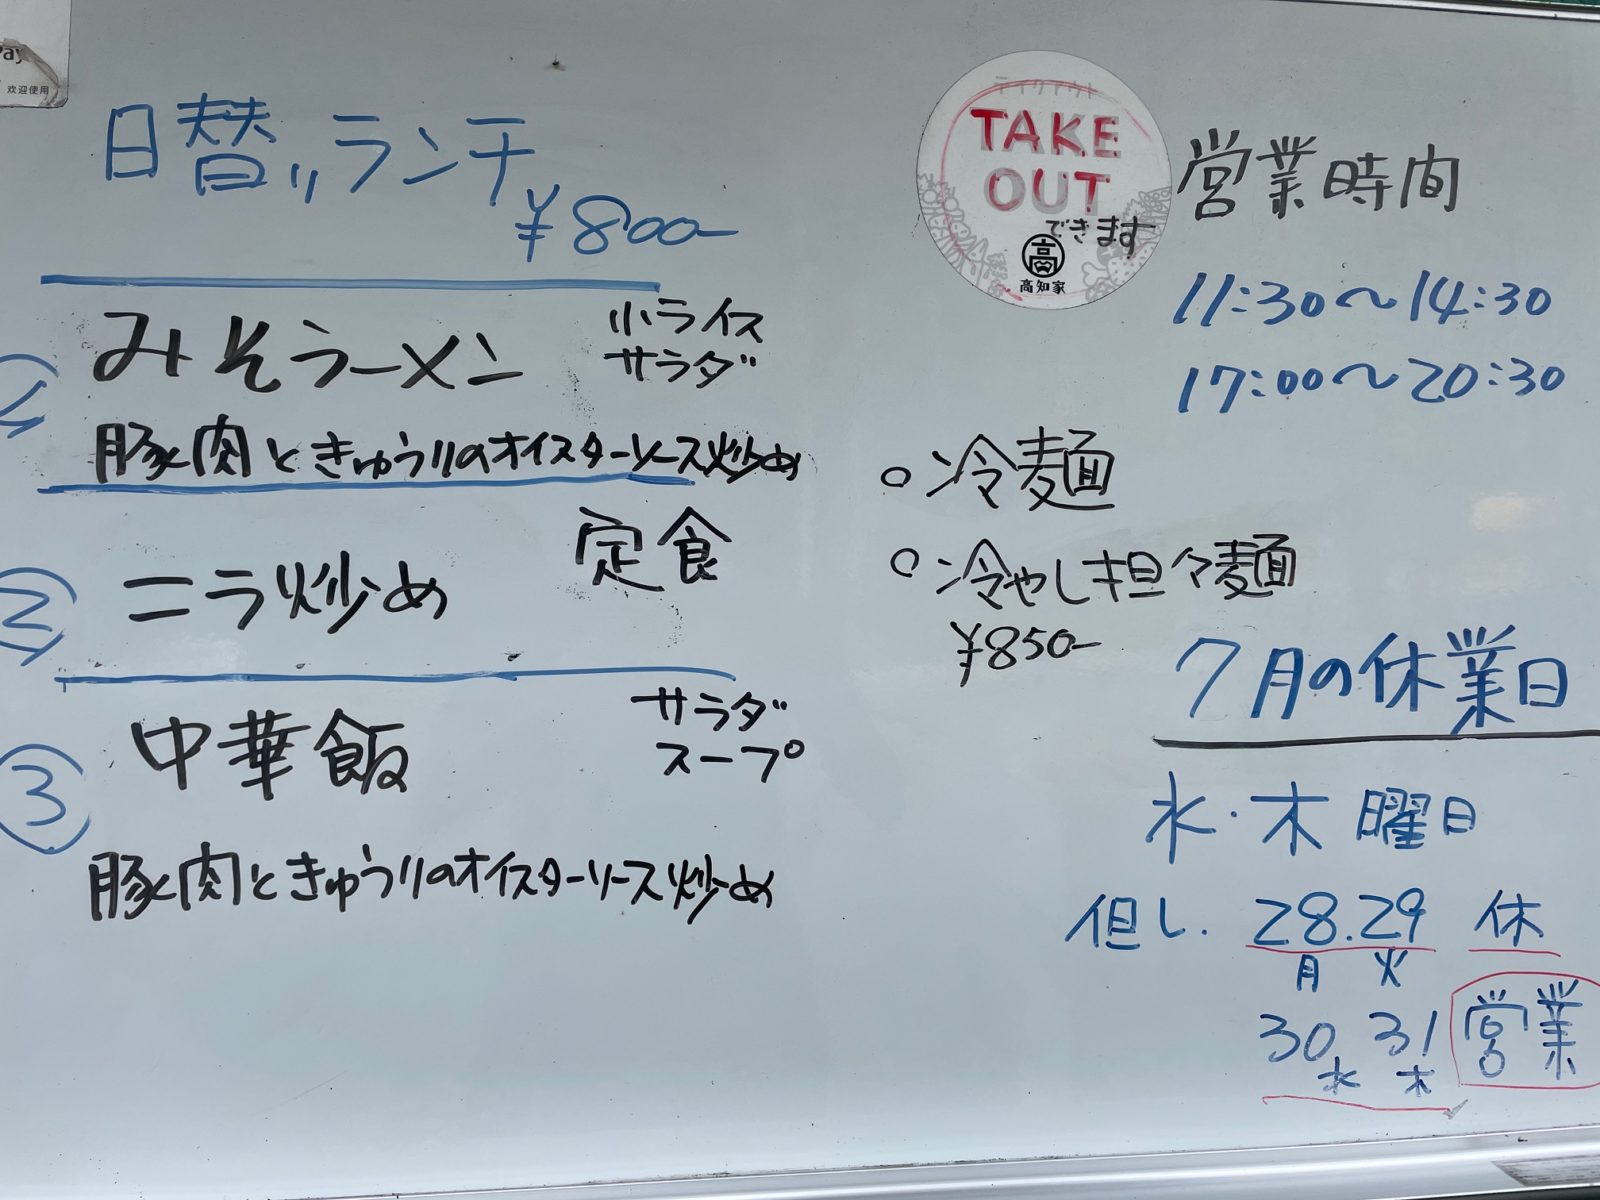 Pay
欢迎使用
日替りランチ
¥800-
① みそラーメン
小ライス
サラダ
豚肉ときゅうりのオイスターソース炒め
② ニラ炒め
定食
③ 中華飯
サラダ
スープ
豚肉ときゅうりのオイスターソース炒め
テイクアウト
TAKE
OUT
できます
高
高知家
営業時間
11:30〜14:30
17:00〜20:30
○冷麺
○冷やし担々麺
¥850-
7月の休業日
水・木曜日
但し.28.29 休
月 火
30 31 営業
水 木